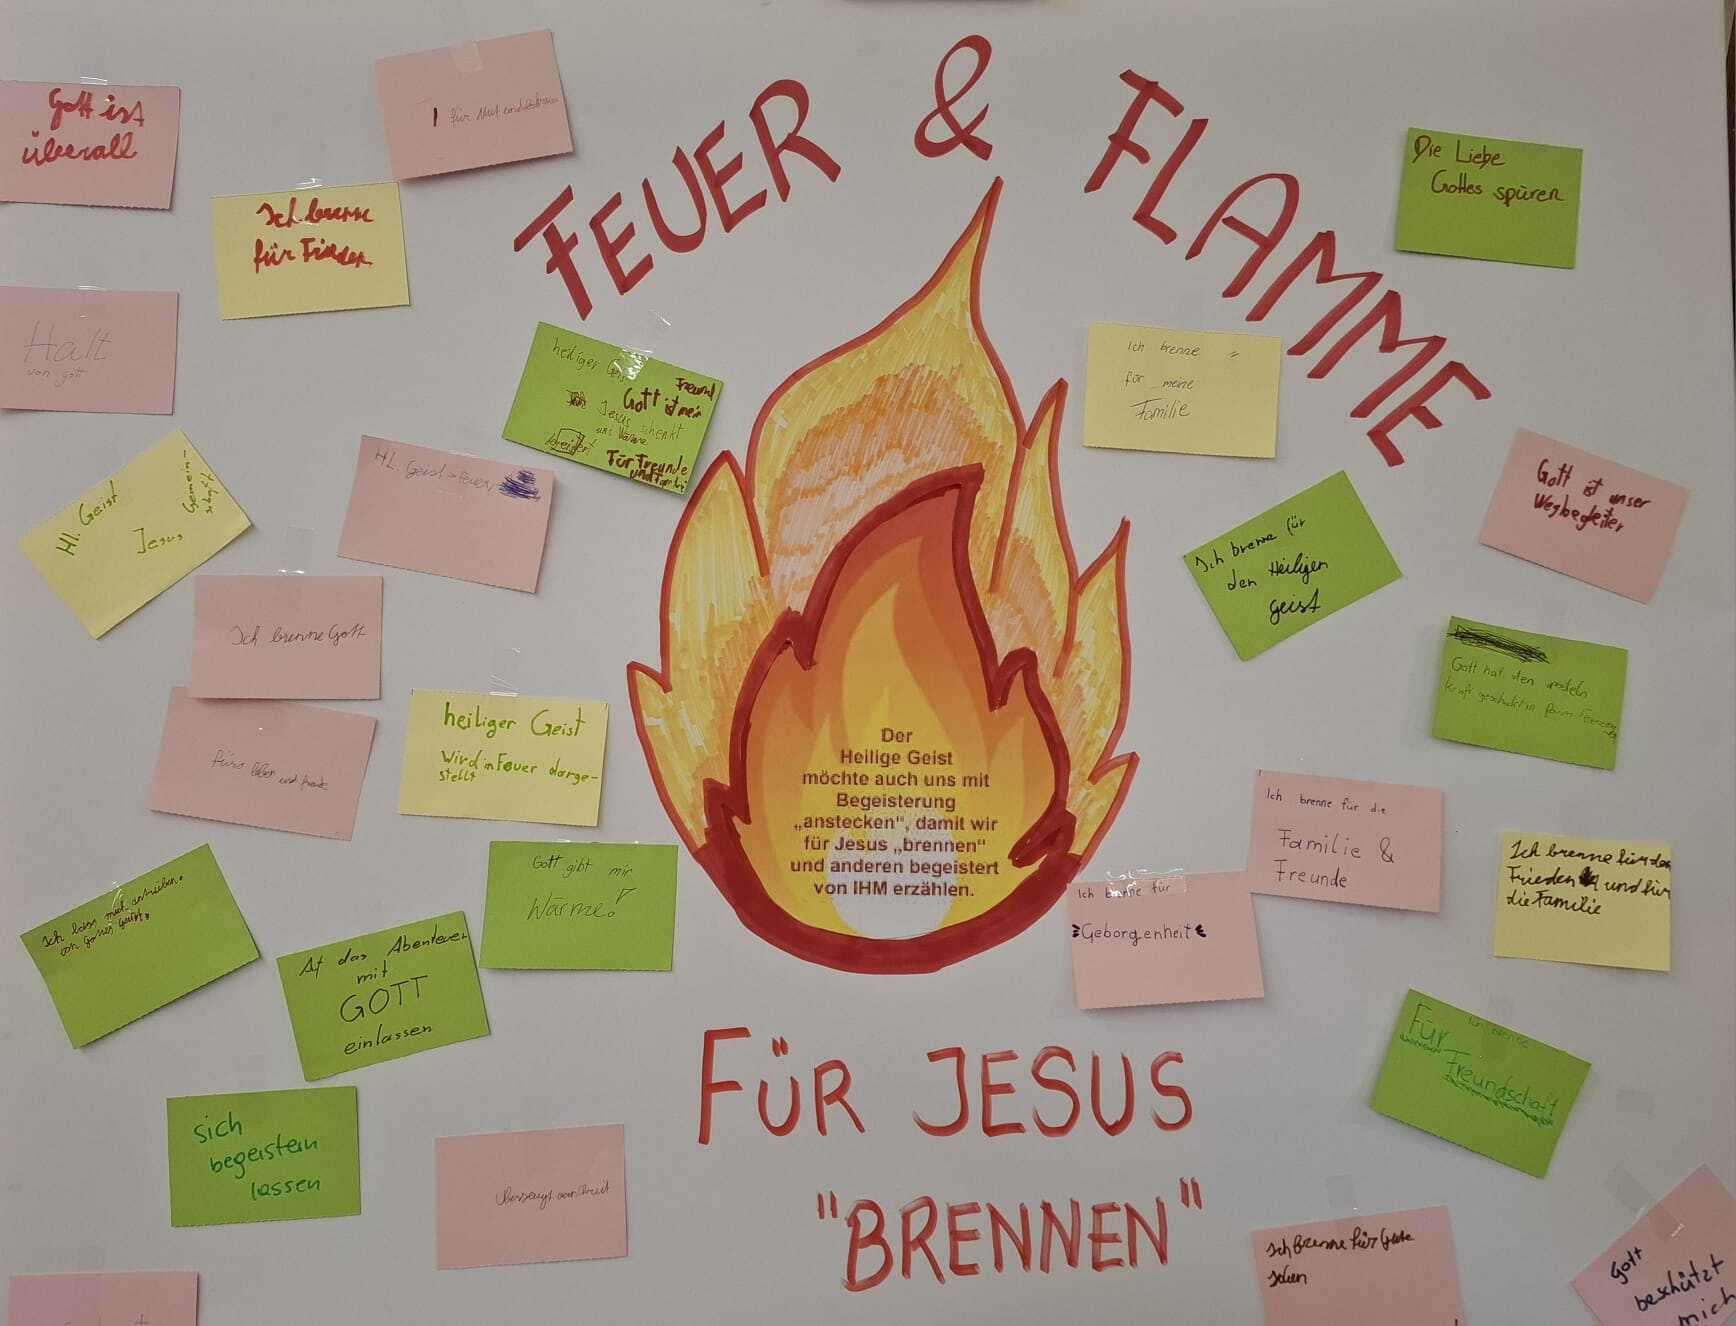 FEUER & FLAMME
Gott ist
überall
für Mut und
Ich brenne
für Frieden
Die Liebe
Gottes spüren
Halt
von gott
heiliger Geis
Freund
Gott ist mein
Jesus schenkt
uns Wärme
Für Freunde
und Famili
Ich brenne
für meine
Familie
Hl. Geist
Jesus
Gemein-
schaft
Hl. Geist = Feuer
Gott ist unser
Wegbegleiter
Ich brenne für
den Heiligen
geist
Ich brenne Gott
Gott hat den
kraft geschickt in form
heiliger Geist
Wird in Feuer darge-
stellt
fürs leben und
Der
Heilige Geist
möchte auch uns mit
Begeisterung
„anstecken“, damit wir
für Jesus „brennen“
und anderen begeistert
von IHM erzählen.
Ich brenne für die
Familie &
Freunde
Ich brenne für den
Frieden und für
die Familie
Gott gibt mir
Wärme!
Ich brenne für
Geborgenheit
Ich lass mich antreiben
von Gottes Geist
Auf das Abenteuer
mit
GOTT
einlassen
Ich brenne
Für
Freundschaft
FÜR JESUS
"BRENNEN"
sich
begeistern
lassen
Ich Brenne für
Gott
beschützt
mich